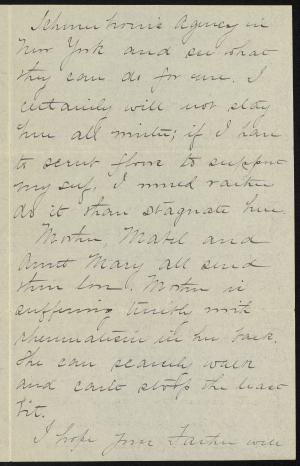 Schermerhorn's Agency in
New York and see what
they can do for me. I
certainly will not stay
here all winter; if I have
to scrub floors to support
myself. I would rather
do it than stagnate here.
Mother, Mabel and
Aunt Mary all send
their love. Mother is
suffering terribly with
rheumatism in her back.
She can scarcely walk
and can't stoop the least
bit.
I hope your Father will